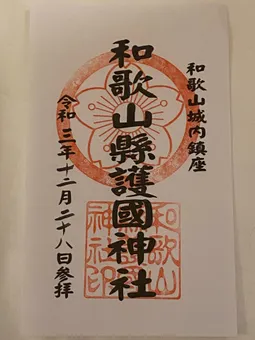 和歌山城内鎮座
和歌山縣護國神社
令和三年十二月二十八日参拝